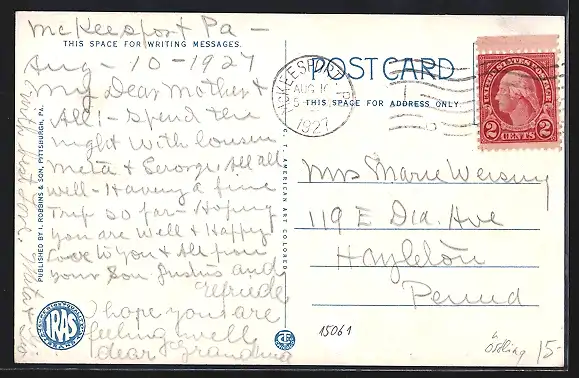 McKeesport Pa -
THIS SPACE FOR WRITING MESSAGES.
Aug - 10 - 1927
My Dear Mother &
All! - Spend the
night with Cousin
Meta & George, All all
well - Having a fine
Trip so far - Hoping
you are well & Happy
Love to you & All from
your Son Justus and
I hope you are
feeling well
dear Grandma
with best love,
PUBLISHED BY I. ROBBINS & SON, PITTSBURGH, PA.
IRAS
C. T. AMERICAN ART COLORED
POST CARD
THIS SPACE FOR ADDRESS ONLY
McKEESPORT
AUG 10
5
1927
PA.
UNITED STATES POSTAGE
2 CENTS 2
Mrs Marie
119 E Dia. Ave
Hazleton
Penna
15061
15-